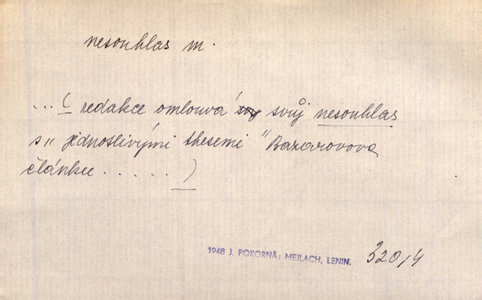 nesouhlas m.
...( redakce omlouvá svůj nesouhlas
s„ jednotlivými thesemi " Bazarovova
článku ..... )
1948 J. POKORNÁ: MEILACH, LENIN. 320/4